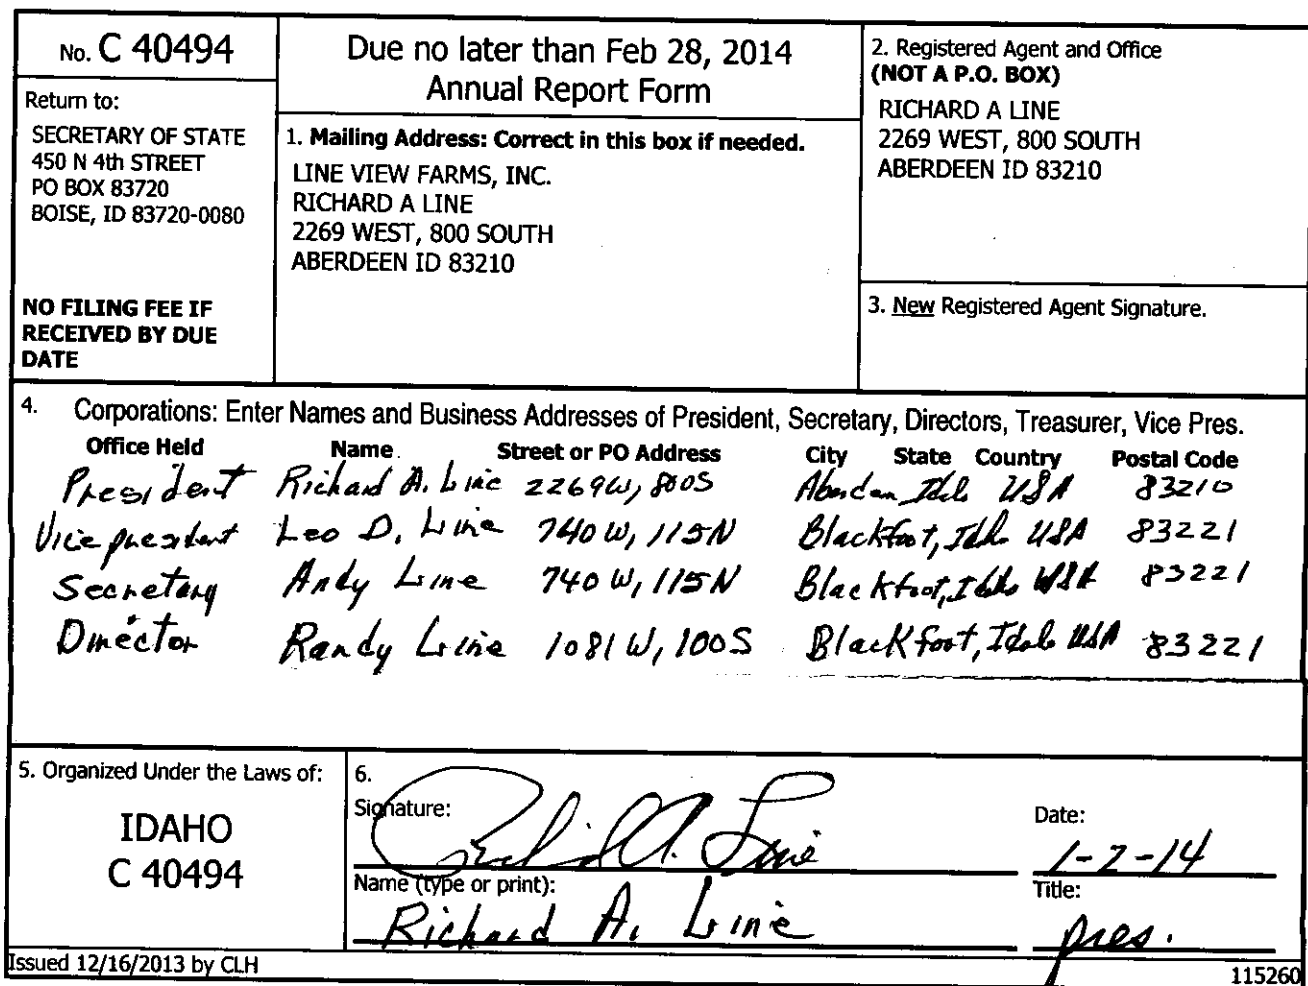 No. C 40494
Due no later than Feb 28, 2014
Annual Report Form
Return to:
SECRETARY OF STATE
450 N 4th STREET
PO BOX 83720
BOISE, ID 83720-0080
NO FILING FEE IF
RECEIVED BY DUE
DATE
1. Mailing Address: Correct in this box if needed.
LINE VIEW FARMS, INC.
RICHARD A LINE
2269 WEST, 800 SOUTH
ABERDEEN ID 83210
2. Registered Agent and Office
(NOT A P.O. BOX)
RICHARD A LINE
2269 WEST, 800 SOUTH
ABERDEEN ID 83210
3. New Registered Agent Signature.
4. Corporations: Enter Names and Business Addresses of President, Secretary, Directors, Treasurer, Vice Pres.
Office Held Name Street or PO Address City State Country Postal Code
President Richard A. Line 2269W, 800S Aberdeen Idaho USA 83210
Vice president Leo D. Line 740 W, 115N Blackfoot, Idaho USA 83221
Secretary Andy Line 740 W, 115N Blackfoot, Idaho USA 83221
Director Randy Line 1081 W, 100S Blackfoot, Idaho USA 83221
5. Organized Under the Laws of:
IDAHO
C 40494
6.
Signature: Richard A. Line
Date: 1-2-14
Name (type or print): Richard A. Line
Title: pres.
Issued 12/16/2013 by CLH
115260